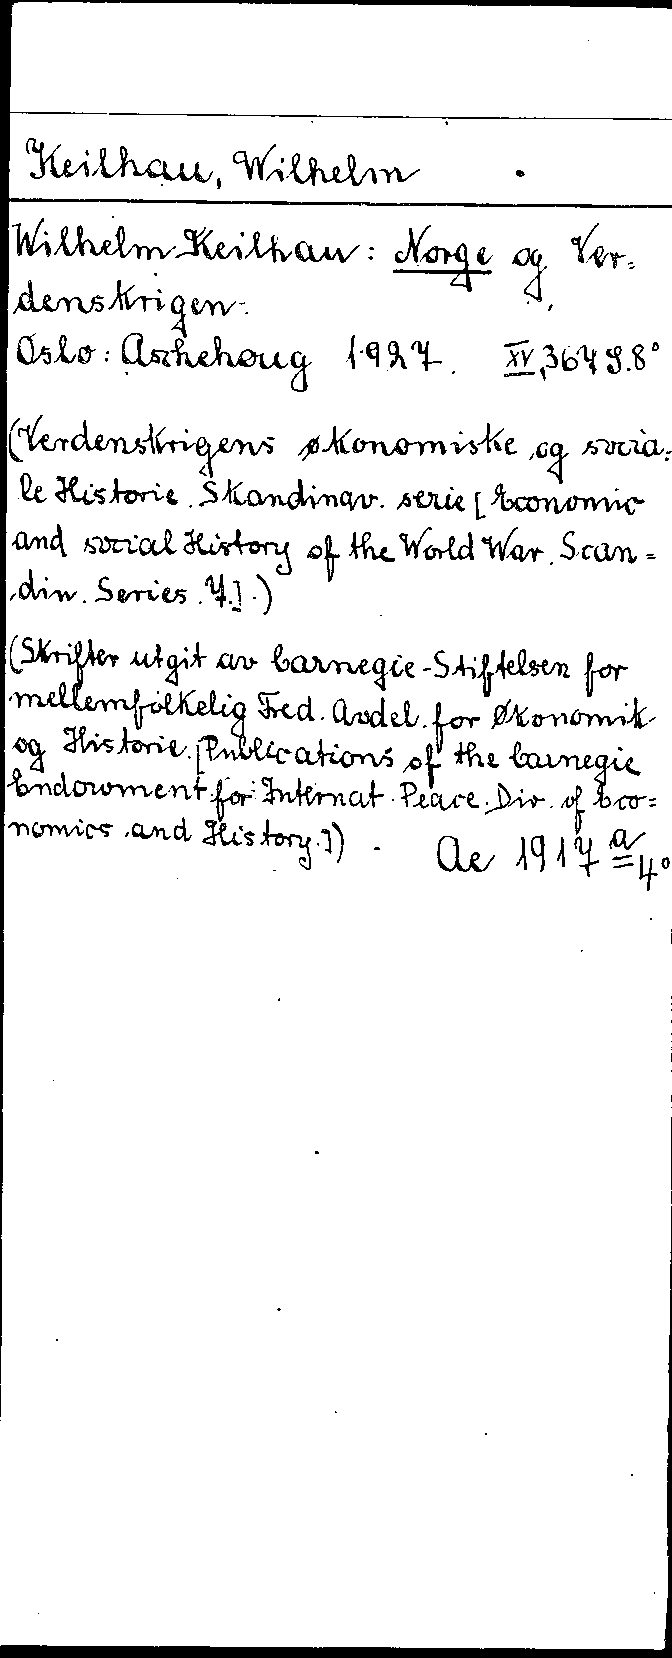 Keilhau, Wilhelm
Wilhelm Keilhau: Norge og Ver=
denskrigen.
Oslo: Aschehoug 1927. XV, 367 S. 8°
(Verdenskrigens økonomiske og socia=
le Historie. Skandinav. serie [Economic
and social History of the World War. Scan=
din. Series. 7.].)
(Skrifter utgit av Carnegie-Stiftelsen for
mellemfolkelig Fred. Avdel. for Økonomik
og Historie. [Publications of the Carnegie
Endowment for Internat. Peace. Div. of Eco=
nomics and History.])
Ae 1917 a 4°